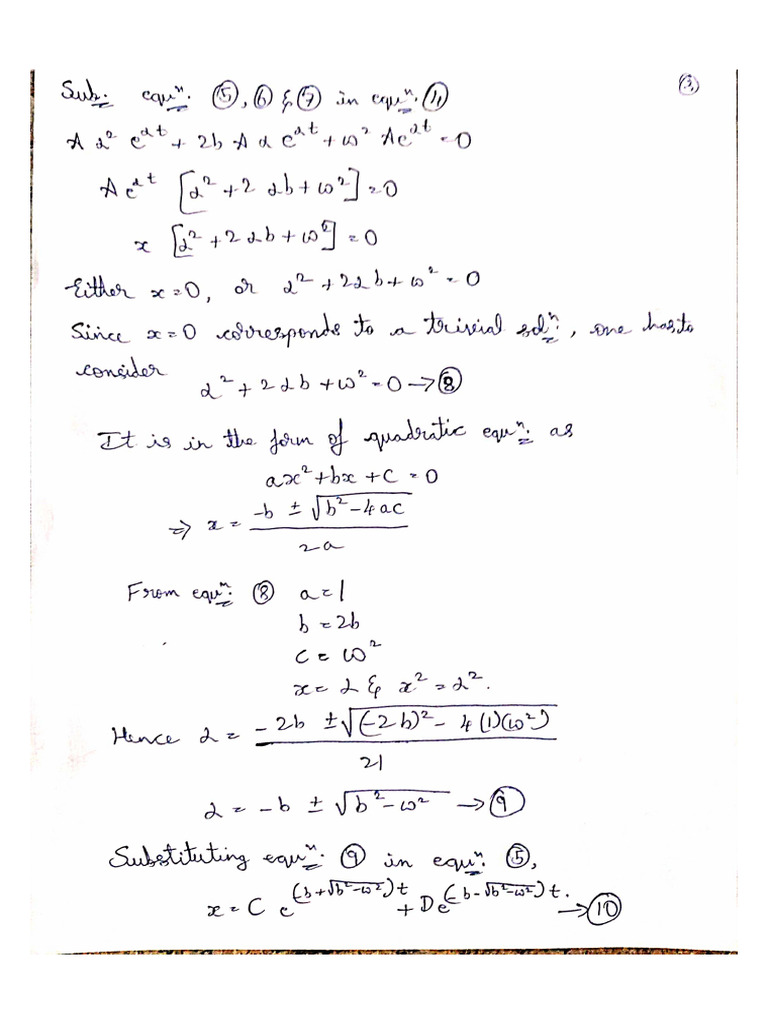 ③
Sub. equⁿ. ⑤, ⑥ & ⑦ in equⁿ. ④
A α² e^{αt} + 2b A α e^{αt} + ω² A e^{αt} = 0
A e^{αt} [α² + 2 αb + ω²] = 0
x [α² + 2 αb + ω²] = 0
Either x=0, or α² + 2αb + ω² = 0
Since x=0 corresponds to a trivial solⁿ, one has to
consider
α² + 2 αb + ω² = 0 → ⑧
It is in the form of quadratic equⁿ. as
ax² + bx + c = 0
⇒ x = \frac{-b ± √(b² - 4ac)}{2a}
From equⁿ. ⑧ a = 1
b = 2b
c = ω²
x = α & x² = α².
Hence α = \frac{-2b ± √((-2b)² - 4(1)(ω²))}{21}
α = -b ± √(b² - ω²) → ⑨
Substituting equⁿ. ⑨ in equⁿ. ⑤,
x = C e^{(-b + √(b² - ω²))t} + D e^{(-b - √(b² - ω²))t}. → ⑩